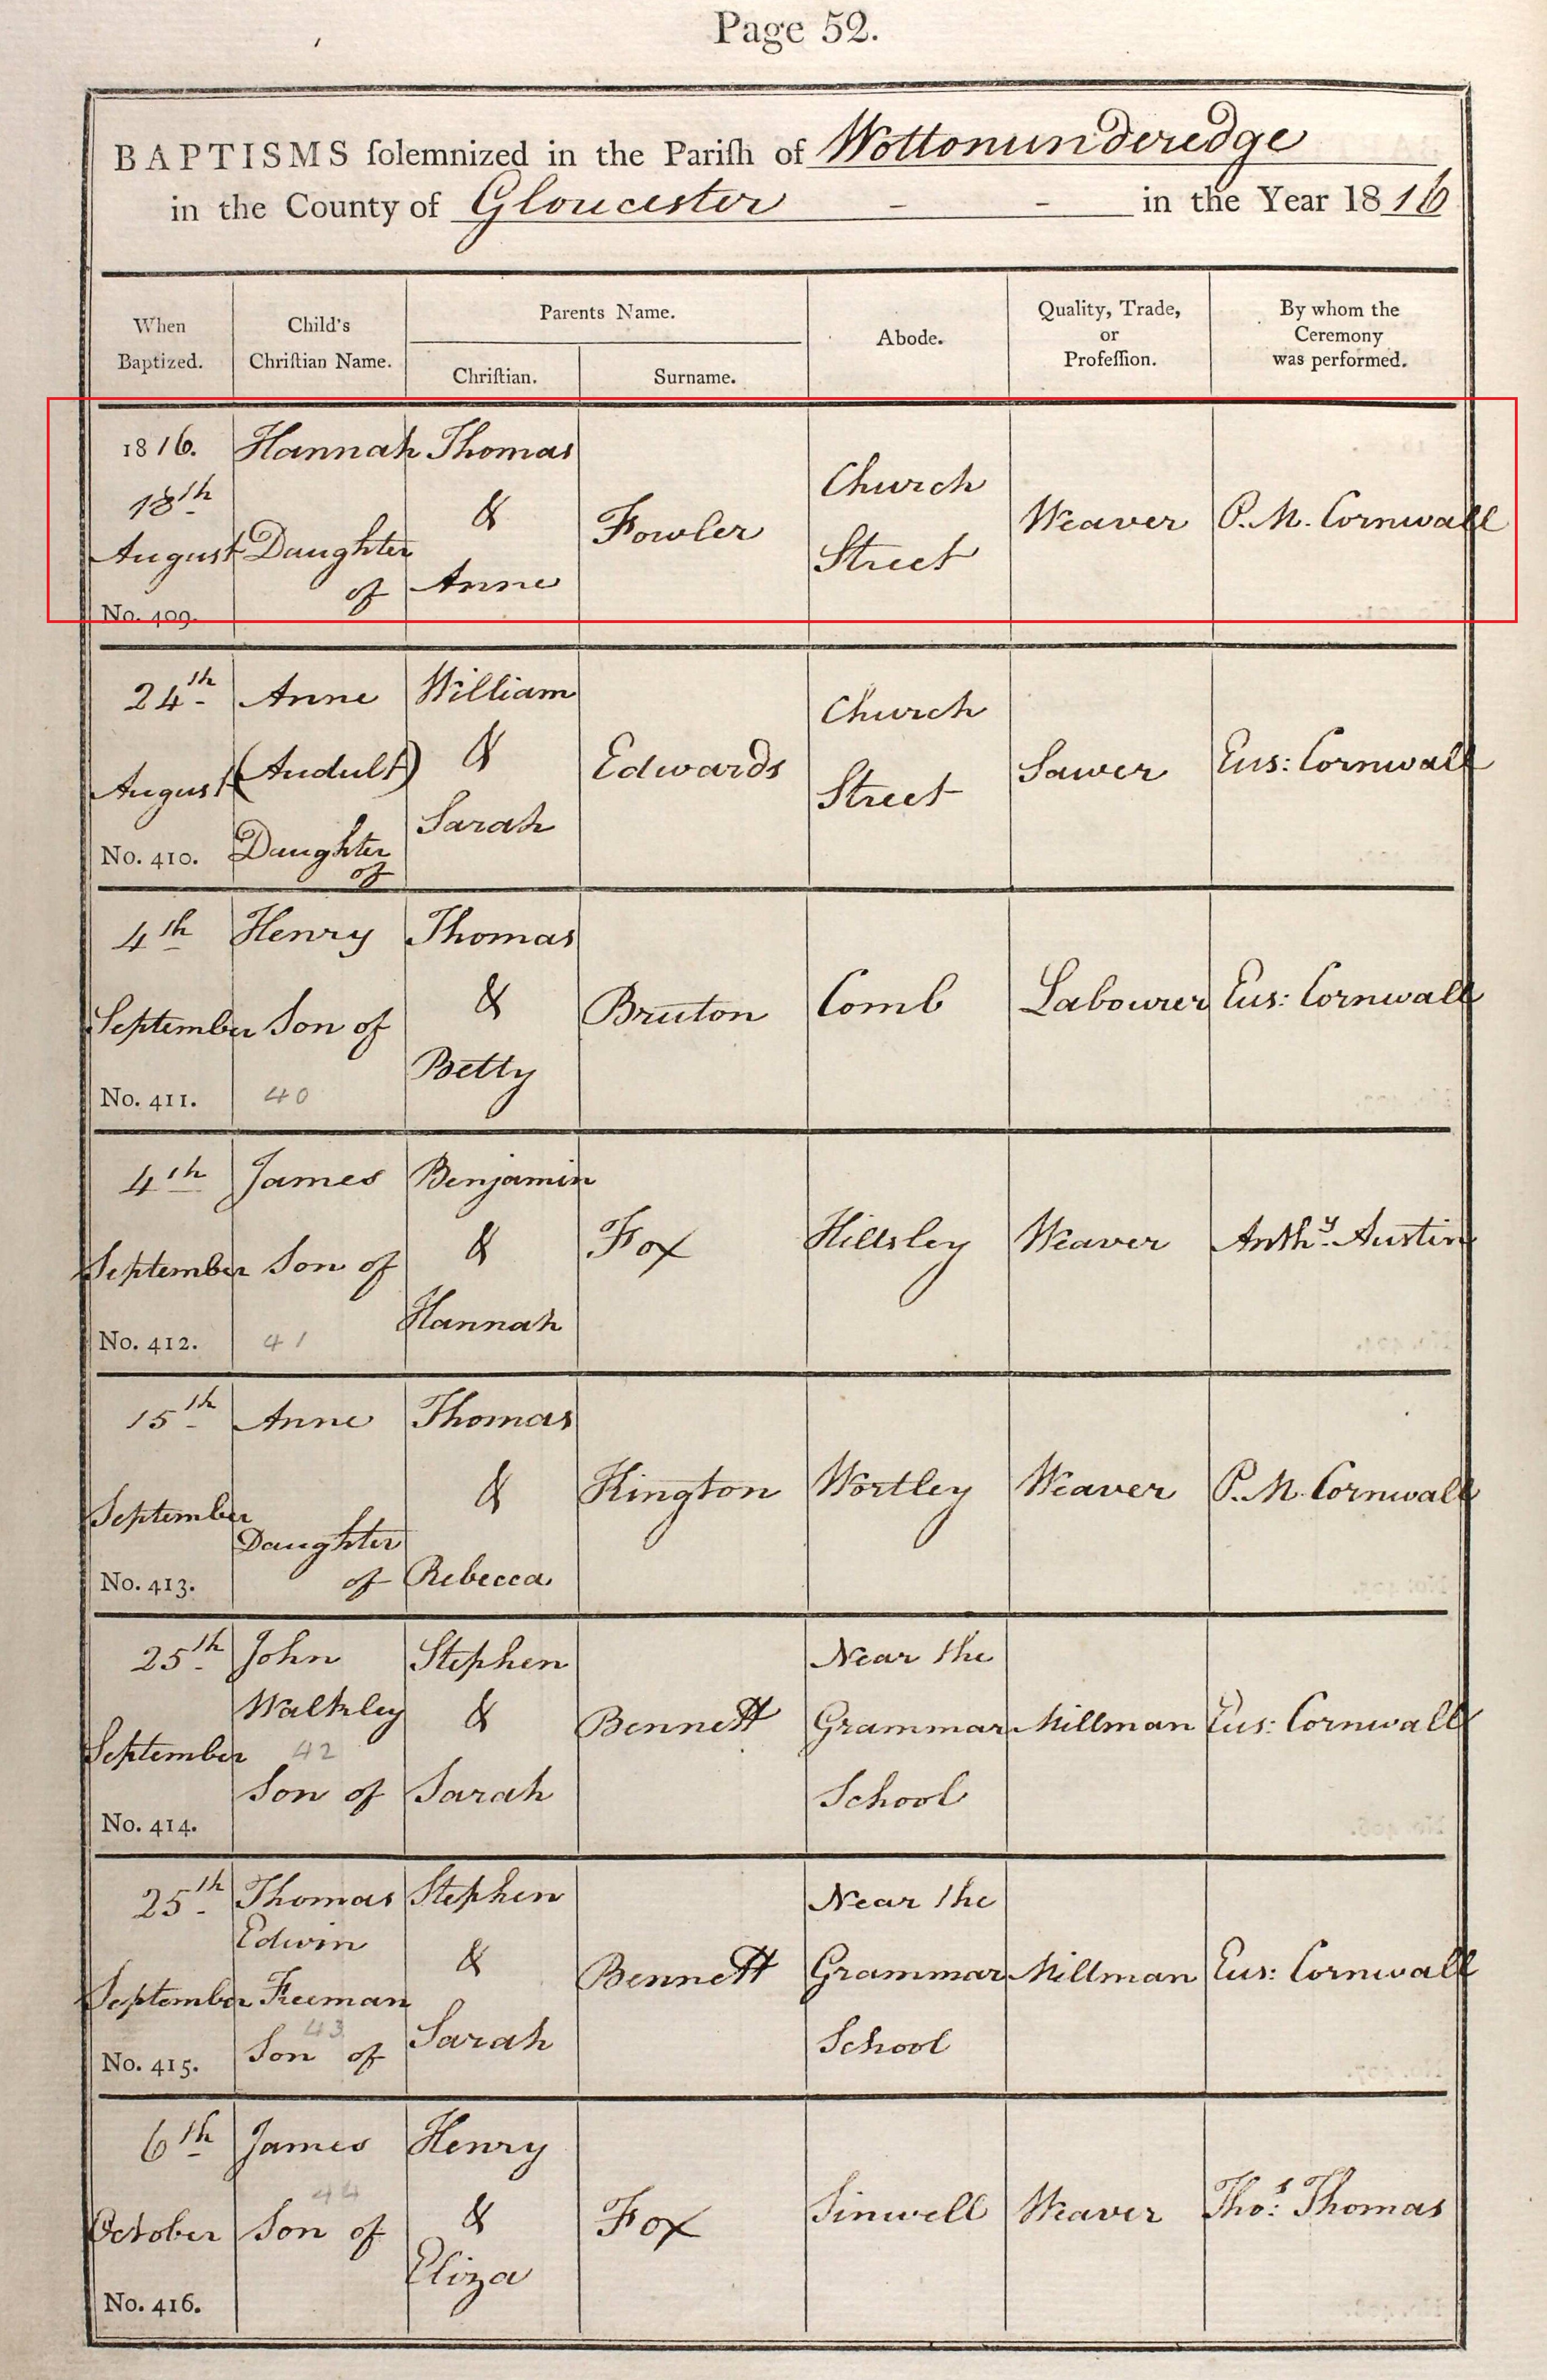 Page 52.
BAPTISMS ſolemnized in the Pariſh of Wottonunderedge
in the County of Gloucester - - in the Year 1816
When Baptized.
Child's Chriſtian Name.
Parents Name.
Chriſtian.
Surname.
Abode.
Quality, Trade, or Profeſſion.
By whom the Ceremony was performed.
1816.
18th
August
No. 409.
Hannah
Daughter
of
Thomas
&
Anne
Fowler
Church
Street
Weaver
P. M. Cornwall
24th
August
No. 410.
Anne
(Audult)
Daughter
of
William
&
Sarah
Edwards
Church
Street
Sawer
Eus: Cornwall
4th
September
No. 411.
Henry
Son of
40
Thomas
&
Betty
Bruton
Comb
Labourer
Eus: Cornwall
4th
September
No. 412.
James
Son of
41
Benjamin
&
Hannah
Fox
Hillsley
Weaver
Anthy. Austin
15th
September
No. 413.
Anne
Daughter
of
Thomas
&
Rebecca
Kington
Wortley
Weaver
P. M. Cornwall
25th
September
No. 414.
John
Walkley
42
Son of
Stephen
&
Sarah
Bennett
Near the
Grammar
School
Millman
Eus: Cornwall
25th
September
No. 415.
Thomas
Edwin
Freeman
43
Son of
Stephen
&
Sarah
Bennett
Near the
Grammar
School
Millman
Eus: Cornwall
6th
October
No. 416.
James
44
Son of
Henry
&
Eliza
Fox
Sinwell
Weaver
Thos: Thomas